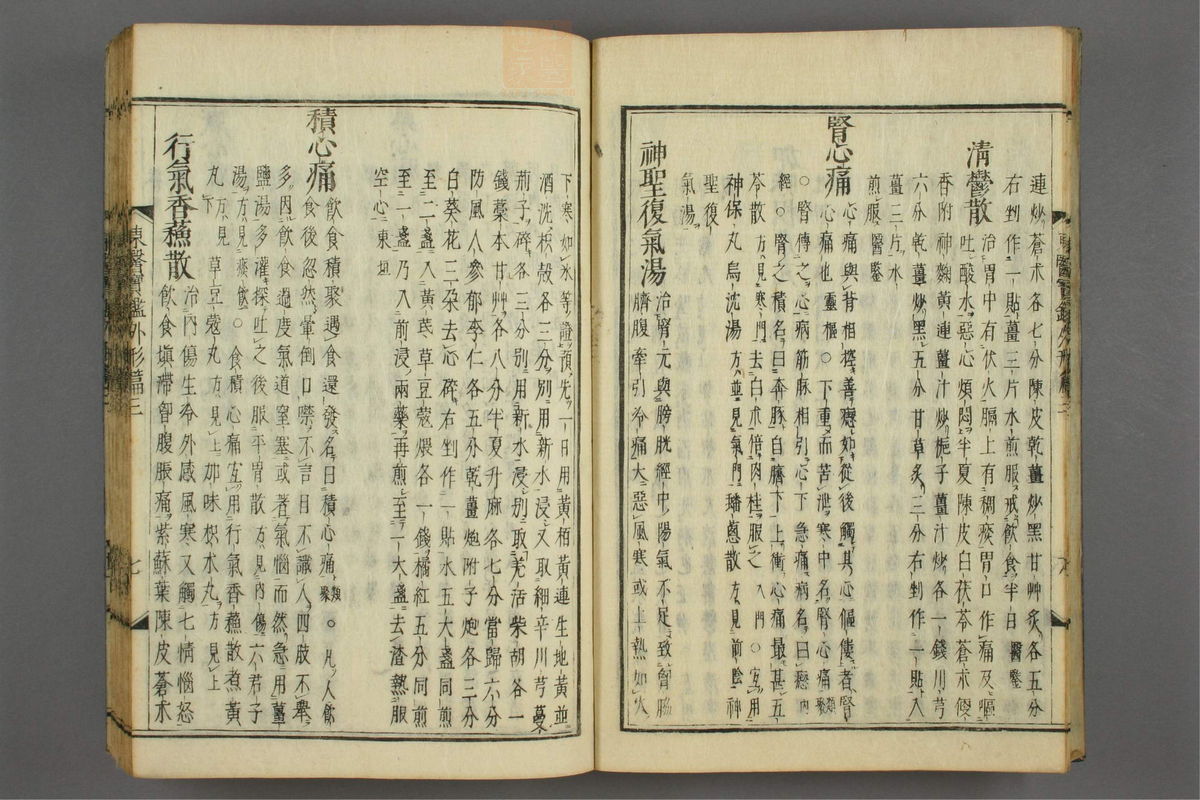 連炒蒼朮各七分陳皮乾薑炒黑甘艸炙各五分
右剉作一貼薑三片水煎服戒飲食半日醫鑒
清鬱散
治胃中有伏火膈上有稠痰胃口作痛及嘔
吐酸水惡心煩悶半夏陳皮白茯苓蒼朮便
香附神麴黃連薑汁炒梔子薑汁炒各一錢川芎
六分乾薑炒黑五分甘草炙三分右剉作一貼入
薑三片水
煎服醫鑒
腎心痛
心痛與背相控善瘛如從後觸其心傴僂者腎
心痛也靈樞○下重而苦泄寒中名腎心痛類聚
○腎傳之心病筋脉相引心下急痛病名曰瘛內
經○腎之積名曰奔豚自臍下上衝心痛最甚五
苓散方見寒門去白朮倍肉桂服之入門○宜用
神保丸烏沈湯方並見氣門蟠葱散方見前陰神
聖復
氣湯
神聖復氣湯
治腎元與膀胱經中陽氣不足致胷脇
臍腹牽引冷痛大惡風寒或上熱如火
下寒如氷等證預先一日用黃栢黃連生地黃並
酒洗枳殼各三分別用新水浸又取細辛川芎蔓
荊子碎各三分別用新水浸別取羌活柴胡各一
錢藁本甘艸各八分半夏升麻各七分當歸六分
防風人參郁李仁各五分乾薑炮附子炮各三分
白葵花三朶去心碎右剉作一貼水五大盞同煎
至二盞入黃芪草豆蔲煨各一錢橘紅五分同煎
至一盞乃入前浸兩藥再煎至一大盞去渣熱服
空心東垣
積心痛
飮食積聚遇食還發名曰積心痛類聚○凡人飮
食後忽然暈倒口噤不言目不識人四肢不擧
多因飮食過度氣道窒塞或着氣惱而然急用薑
鹽湯多灌探吐之後服平胃散方見內傷六君子
湯方見痰飮○食積心痛宜用行氣香蘓散煮黃
丸方見下草豆蔲丸方見上加味枳朮丸方見上
行氣香蘓散
治內傷生冷外感風寒又觸七情惱怒
飮食塡滯胷腹脹痛紫蘇葉陳皮蒼朮
東醫寶鑑外形篇三
七